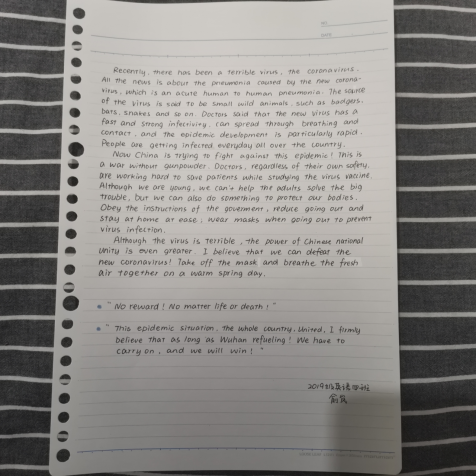 Recently, there has been a terrible virus, the coronavirus.
All the news is about the pneumonia caused by the new corona-
virus, which is an acute human to human pneumonia. The source
of the virus is said to be small wild animals, such as badgers.
bats, snakes and so on. Doctors said that the new virus has a
fast and strong infectivity, can spread through breathing and
contact, and the epidemic development is particularly rapid.
People are getting infected everyday all over the country.
Now China is trying to fight against this epidemic! This is
a war without gunpowder. Doctors, regardless of their own safety,
are working hard to save patients while studying the virus vaccine.
Although we are young, we can't help the adults solve the big
trouble, but we can also do something to protect our bodies.
Obey the instructions of the goverment, reduce going out and
stay at home at ease, wear masks when going out to prevent
virus infection.
Although the virus is terrible, the power of Chinese national
unity is even greater. I believe that we can defeat the
new coronavirus! Take off the mask and breathe the fresh
air together on a warm spring day.
" No reward! No matter life or death! "
" This epidemic situation, the whole country. United, I firmly
believe that as long as Wuhan refueling! We have to
carry on, and we will win! "
2019级英语四班